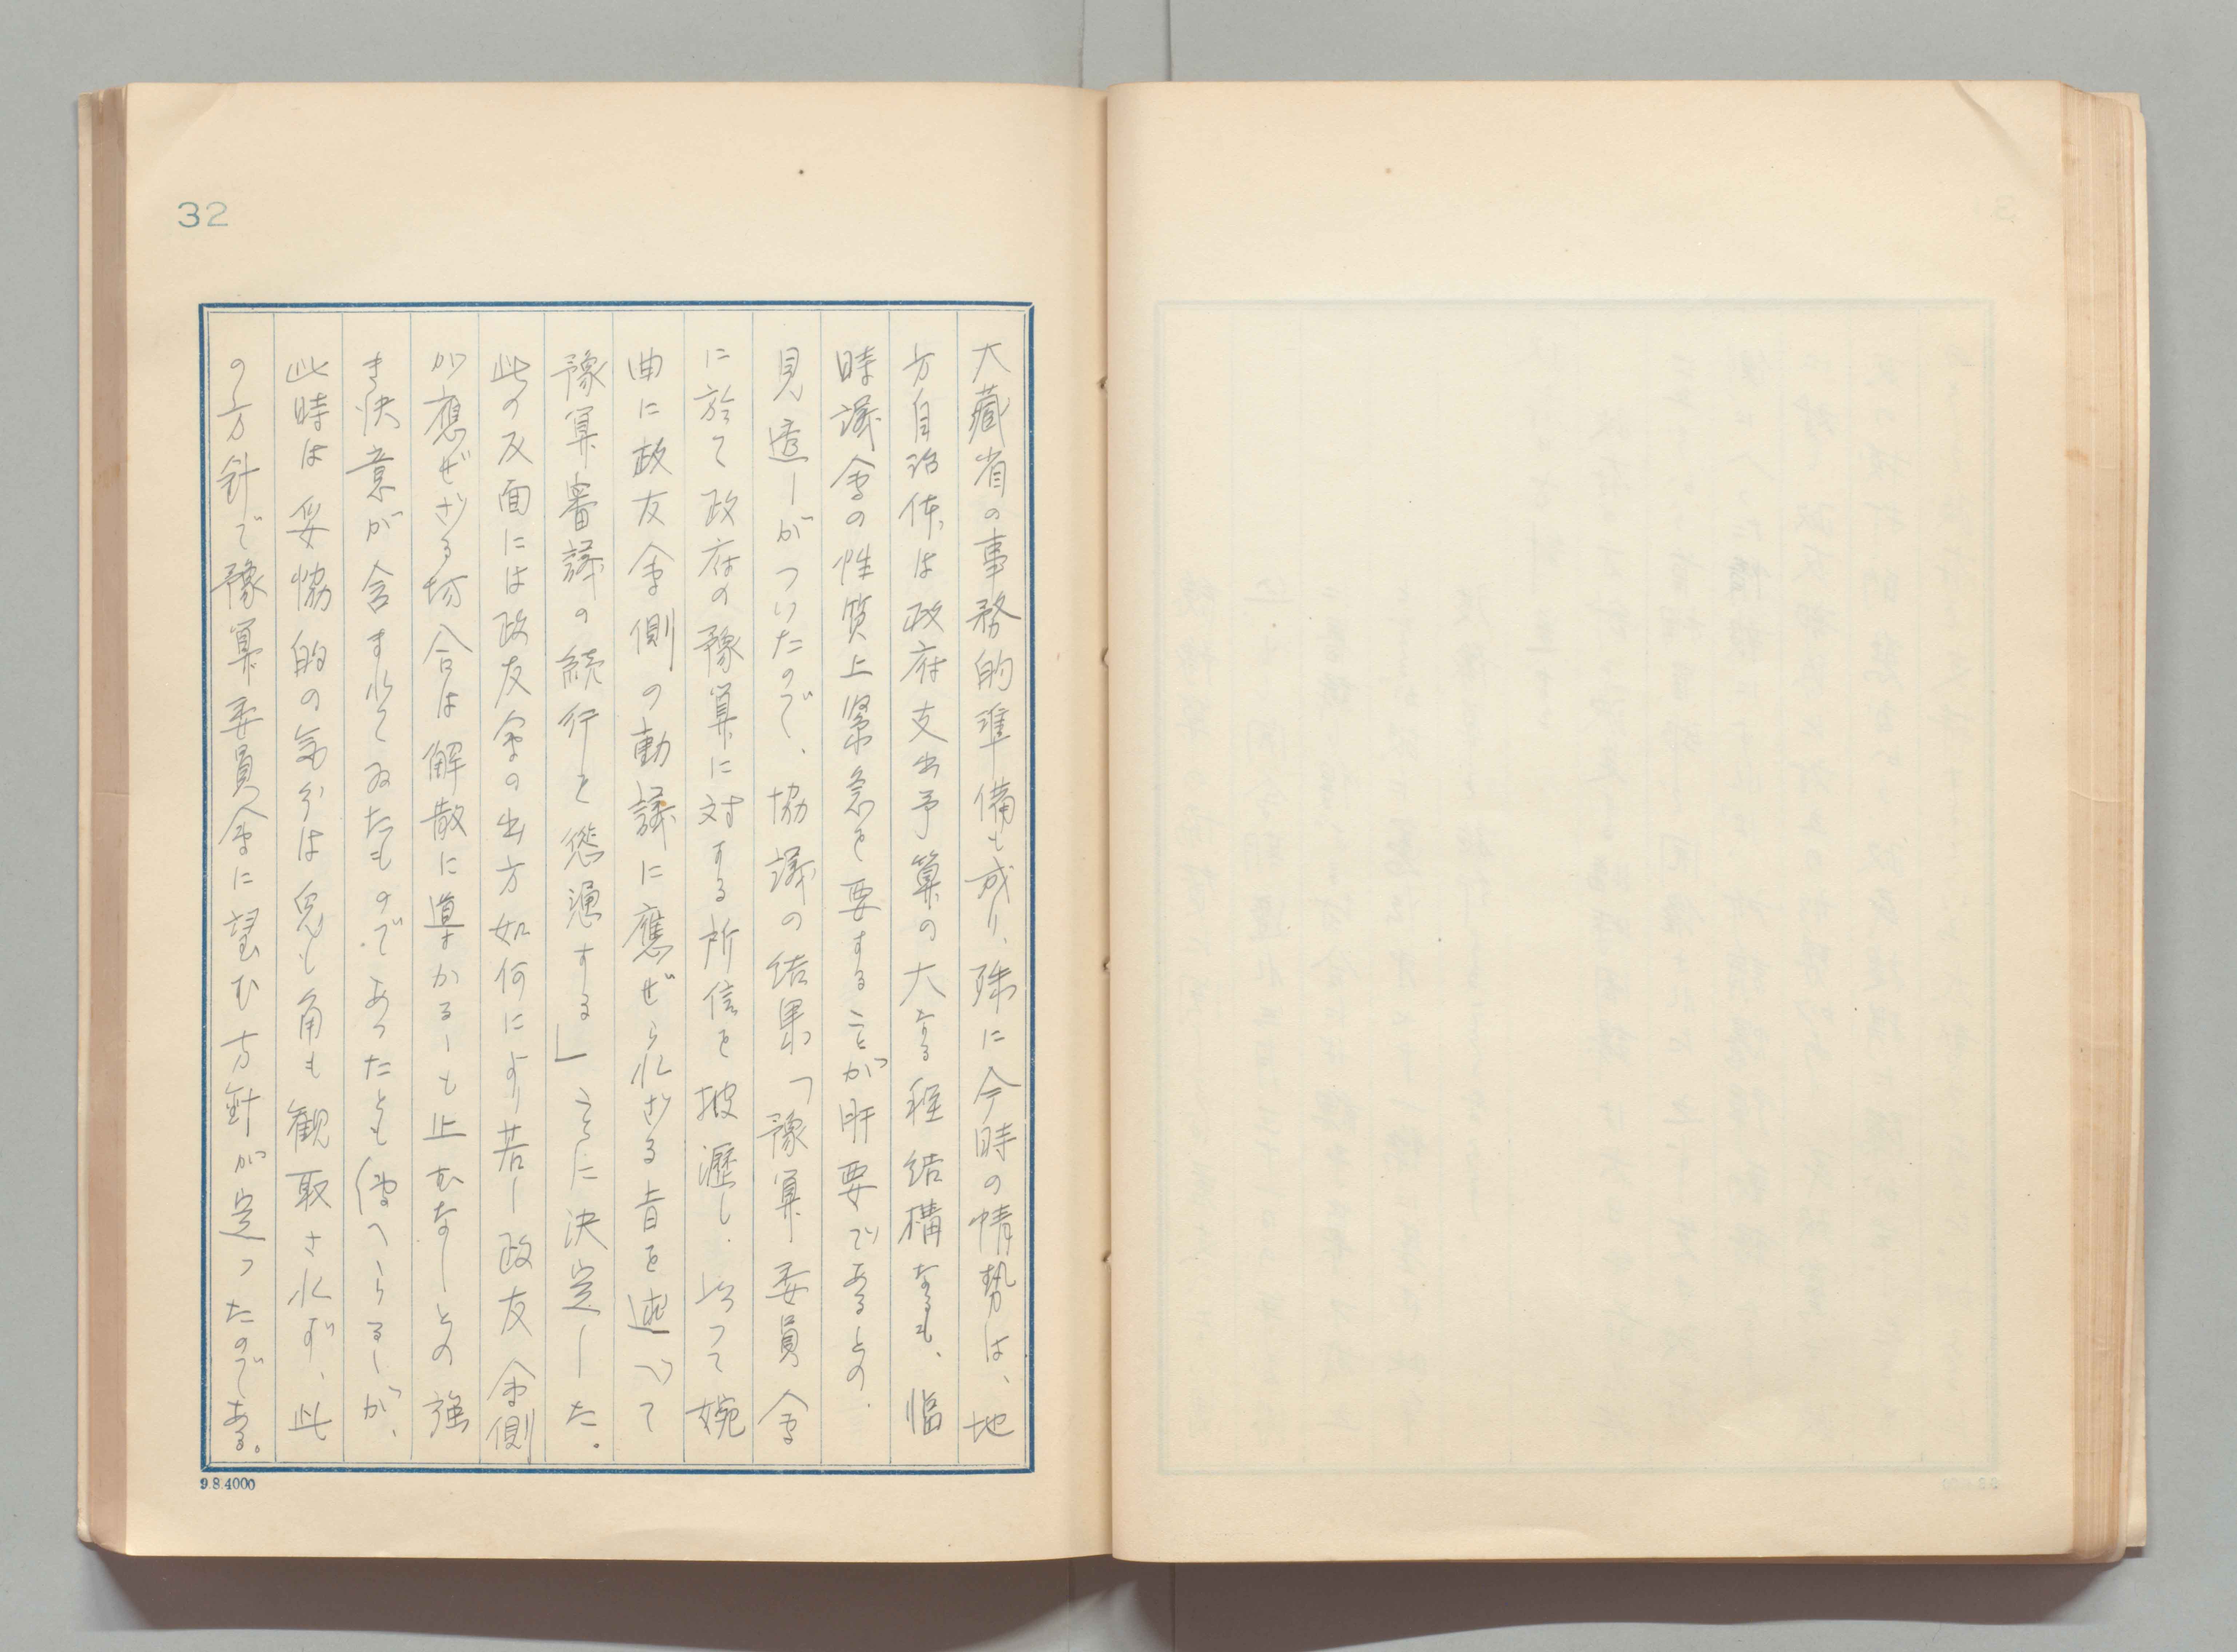 32
大藏省の事務的準備も成り、殊に今時の情勢は、地
方自治体は政府支出予算の大なる程結構なるも、臨
時議会の性質上緊急を要することが肝要であるとの
見透しがついたので、協議の結果「豫算委員会
に於て政府の豫算に対する所信を披瀝し、以って婉
曲に政友会側の動議に應ぜられざる旨を述べて
豫算審議の続行を慫慂する」ことに決定した。
此の反面には政友会の出方如何により若し政友会側
が應ぜざる場合は解散に導かるゝも止むなしとの強
き決意が含まれてゐたものであったとも傳へらるゝが、
此時は妥協的の気分は兎も角も観取されず、此
の方針で豫算委員会に望む方針が定ったのである。
9.8.4000